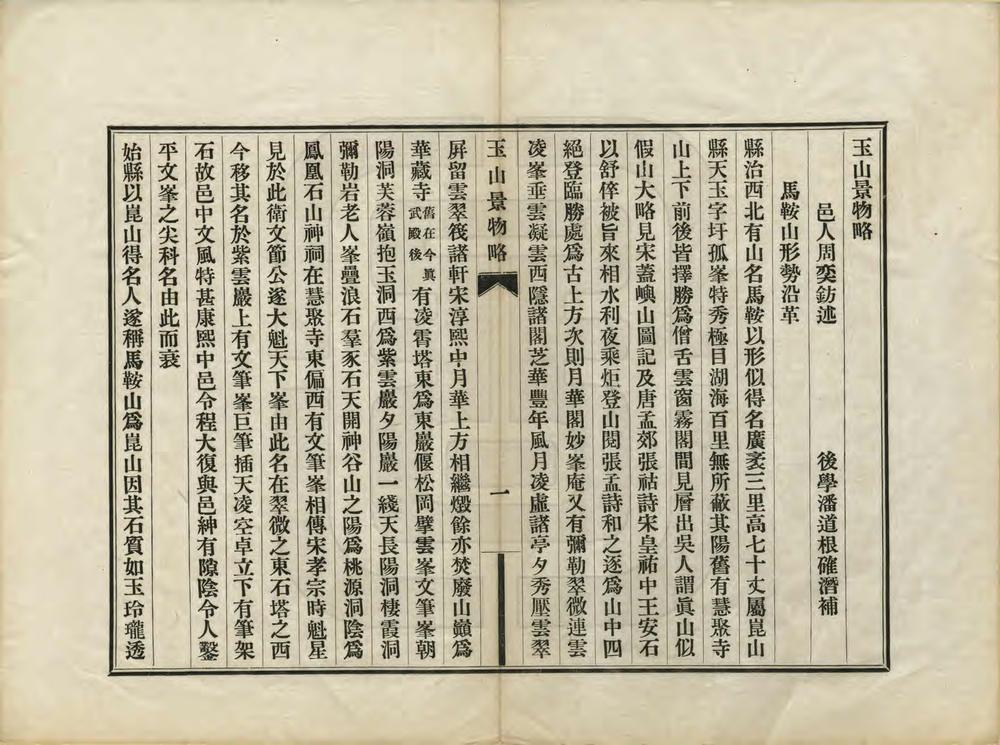 玉山景物略
邑人周奕鈁述 後學潘道根確潛補
馬鞍山形勢沿革
縣治西北有山名馬鞍以形似得名廣袤三里高七十丈屬崑山
縣天玉字圩孤峯特秀極目湖海百里無所蔽其陽舊有慧聚寺
山上下前後皆擇勝爲僧舌雲窗霧閣間見層出吳人謂眞山似
假山大略見宋蓋嶼山圖記及唐孟郊張祜詩宋皇祐中王安石
以舒倅被旨來相水利夜乘炬登山閱張孟詩和之遂爲山中四
絕登臨勝處爲古上方次則月華閣妙峯庵又有彌勒翠微連雲
凌峯垂雲凝雲西隱諸閣芝華豐年風月凌虛諸亭夕秀壓雲翠
玉山景物略 一
屛留雲翠筏諸軒宋淳熙中月華上方相繼燬餘亦焚廢山巔爲
華藏寺舊在今眞武殿後有凌霄塔東爲東巖偃松岡擘雲峯文筆峯朝
陽洞芙蓉嶺抱玉洞西爲紫雲巖夕陽巖一綫天長陽洞棲霞洞
彌勒岩老人峯疊浪石羣豕石天開神谷山之陽爲桃源洞陰爲
鳳凰石山神祠在慧聚寺東偏西有文筆峯相傳宋孝宗時魁星
見於此衛文節公遂大魁天下峯由此名在翠微之東石塔之西
今移其名於紫雲巖上有文筆峯巨筆插天凌空卓立下有筆架
石故邑中文風特甚康熙中邑令程大復與邑紳有隙陰令人鑿
平文峯之尖科名由此而衰
始縣以崑山得名人遂稱馬鞍山爲崑山因其石質如玉玲瓏透